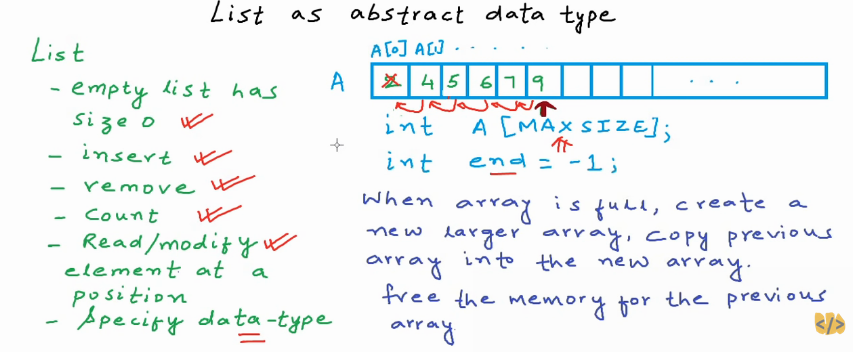 List as abstract data type
List
- empty list has
size 0
- insert
- remove
- Count
- Read/modify
element at a
position
- Specify data-type
A[0] A[1] . . . . .
A 2 4 5 6 7 9 . . .
int A [MAXSIZE];
int end = -1;
When array is full, create a
new larger array, copy previous
array into the new array.
free the memory for the previous
array
</>